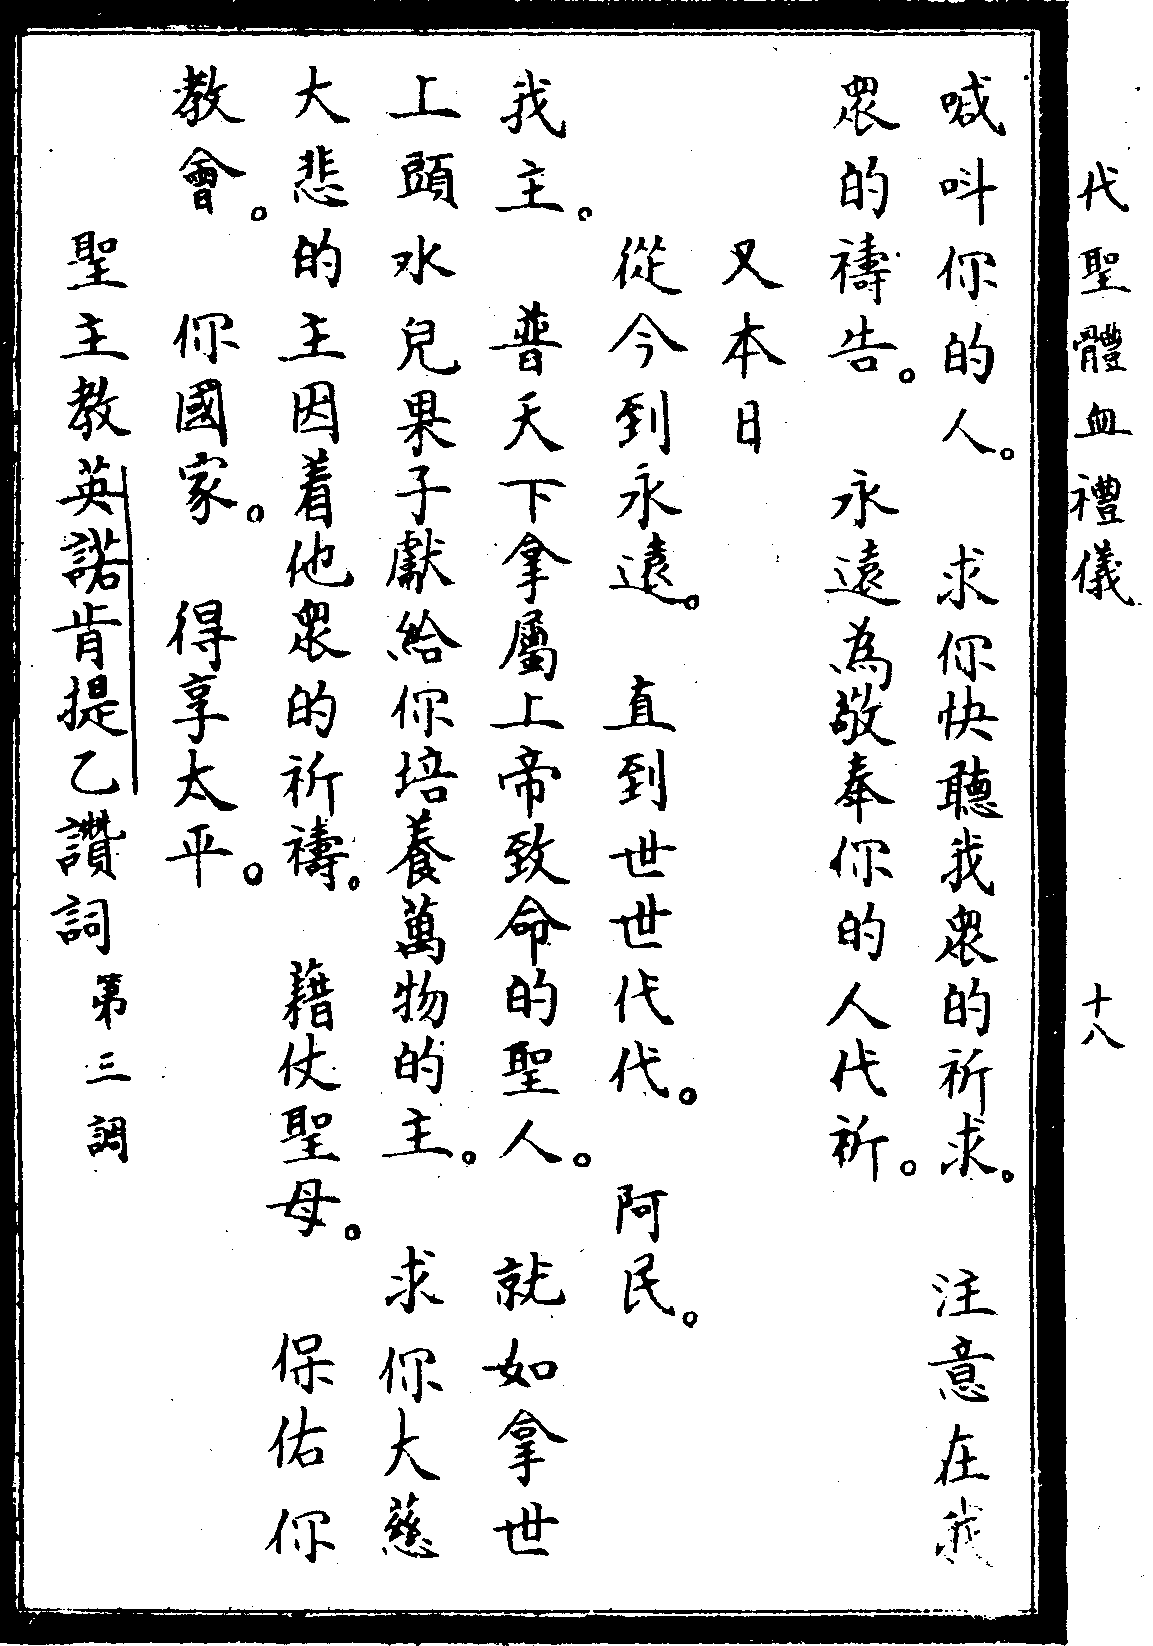 代聖體血禮儀 十八
喊呌你的人。 求你快聽我眾的祈求。 注意在我
眾的禱告。 永遠為敬奉你的人代祈。
又本日
從今到永遠。 直到世世代代。 阿民。
我主。 普天下拿屬上帝致命的聖人。 就如拿世
上頭水兒果子獻給你培養萬物的主。 求你大慈
大悲的主因着他眾的祈禱。 藉仗聖母。 保佑你
教會。 你國家。 得享太平。
聖主教英諾肯提乙讚詞 第三調